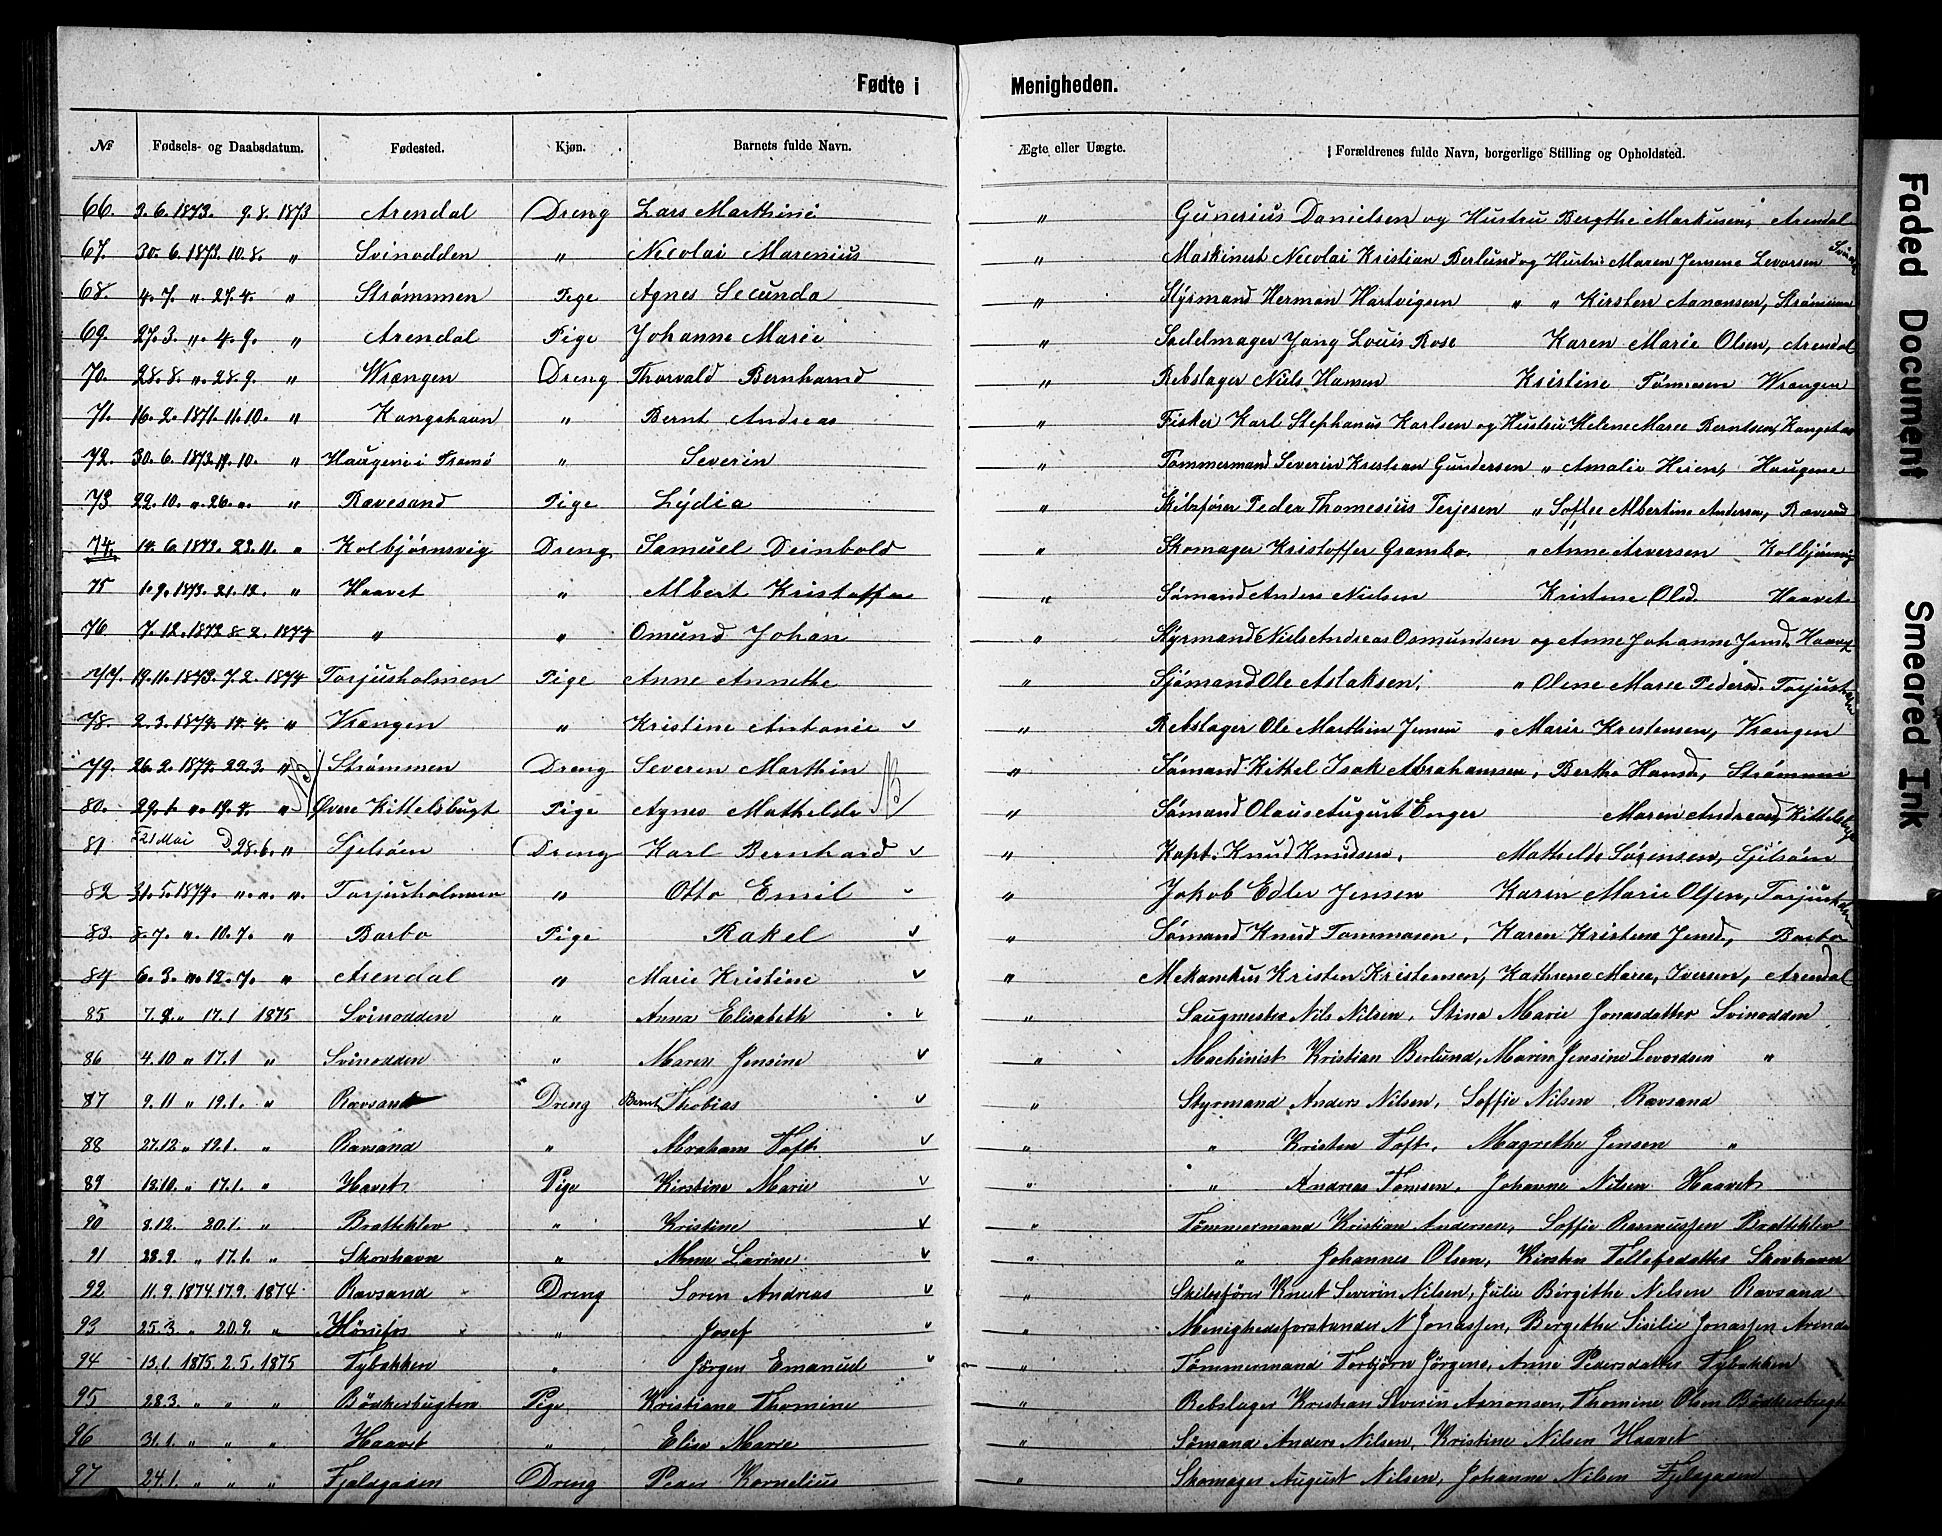 Fødte i Menigheden.
№ Fødsels- og Daabsdatum. Fødested. Kjøn. Barnets fulde Navn. Ægte eller Uægte. Forældrenes fulde Navn, borgerlige Stilling og Opholdsted.
66. 3. 6. 1873. 9. 8. 1873 Arendal Dreng Lars Marthini " Gunerius Danielsen og Hustru Bergthe Markusen, Arendal
67. 30. 6. 1873. 10. 8. " Svinodden " Nicolai Marenius " Maskinest Nicolai Kristian Berlund og Hustru Maren Jensene Levorsen
68. 4. 7. " 27. 4. " Strømmen Pige Agnes Secunda " Styrmand Herman Hartvigsen " " Kirsten Aanonsen, Strømmen
69. 27. 3. " 4. 9. " Arendal Pige Johanne Marie " Sadelmager Jang Louis Rose Karen Marie Olsen, Arendal
70. 28. 8. " 28. 9. " Wrængen Dreng Thorvald Bernhard " Rebslager Niels Hansen Kristine Tønnesen Wrængen
71. 16. 2. 1871. 11. 10. " Kongshavn " Bernt Andreas " Fisker Karl Stephanus Karlsen og Hustru Helene Marie Berntsen,
72. 30. 6. 1873. 11. 10. " Haugene i Tromø " Severin " Tømmermand Severin Kristian Gundersen " Amalie Heien, Haugene
73 22. 10. " 26. " " Ravesand Pige Lydia " Skibsfører Peder Thomesius Terjesen " Soffie Albertine Andersen, Ravesand
74. 14. 6. 1873. 23. 11. " Kolbjørnsvig Dreng Samuel Deinbold " Skomager Kristoffer Grambo. " Anne Arversen Kolbjørnsvig
75 1. 9. 1873. 21. 12. " Haavet " Albert Kristoffer " Sømand Anders Nielsen Kristene Olsd. Haavet
76 7. 12. 1872 8. 2. 1874 " " Omund Johan " Styrmand Niels Andreas Osmundsen og Anne Johanne Jensd. Haavet
77. 19. 11. 1873. 7. 2. 1874 Torjusholmen Pige Anne Annethe " Sjømand Ole Aslaksen, " Olene Marie Pedersd. Torjusholmen
78. 2. 3. 1874. 14. 4. " Vrængen " Kristine Antonie v " Rebslager Ole Marthin Jensen " Marie Kristensen, Vrængen
79. 26. 2. 1874. 22. 3. " Strømmen Dreng Severin Marthin " Sømand Kittel Isak Abrahamsen, Bertha Hansd, Strømmen
80. 29. 1. " 19. 4. " Øvre Kittelsbugt Pige Agnes Mathilde " Sømand Olaus August Enger Maren Andreasd, Kittelsbugt
81 F 21 Mai D 28. 6. " Sjelsøen Dreng Karl Bernhard v " Kapt. Knud Knudsen, Mathilde Sørensen, Sjelsøen
82 31. 5. 1874. " " " Torjusholmen " Otto Emil v " Jakob Edler Jensen Karin Marie Olsen, Torjusholmen
83. 8. 7. " 10. 7. " Barbo Pige Rakel v " Sømand Knud Tommasen, Karen Kristene Jensd, Barbo
84 6. 3. " 12. 7. " Arendal " Marie Kristine v " Mekanikus Kristen Kristensen, Kathrene Marie, Iversen, Arendal
85 7. 2. " 17. 1 1875 Svinodden " Anna Elisabeth v " Saugmester Nils Nilsen, Stina Marie Jonasdatter Svinodden
86 4. 10 " 17. 1 " Svinodden " Maren Jensine v " Machinist Kristian Berlund, Maren Jensine Levordsen "
87 9. 11 " 19. 1. " Ravsand Dreng Bernt Thobias v " Styrmand Anders Nilsen, Soffie Nilsen Ravsand
88 27. 12 " 12. 1. " Ravsand " Abraham Toft v " " Kristen Toft, Magrethe Jensen "
89 12. 10. " 17. 1. " Havet Pige Kirstine Marie v " " Andreas Tomsen, Johanne Nilsen Haavet
90 8. 12. 20. 1. " Bratteklev " Kristine v " Tømmermand Kristian Andersen, Soffie Rasmussen Bratteklev
91 28. 9. " 17. 1. " Skovhavn " Anne Larine v " " Johannes Olsen, Kirsten Tellefsdatter Skovhavn
92 11. 9. 1874. 17. 9. 1874 Ravsand Dreng Soren Andreas v " Skibsfører Knut Severin Nilsen, Julie Birgithe Nilsen Ravsand
93 25. 3. " 20. 9. " Hönefos " Josef v " Menighedsforstander N Jonassen, Bergithe Sisilie Jonassen Arendal
94 13. 1. 1875. 2. 5. 1875 Tybakken " Jörgen Emanuel v " Tømmermand Torbjörn Jörgens, Anne Pedersdatter Tybakken
95 28. 3 " " " Bödkerbugten Pige Kristiane Thomine " Rebslager Kristian Severin Aanonsen, Thomine Olsen Bödkerbugt
96 31. 1. " " " Haavet " Elise Marie " Sømand Anders Nilsen, Kristine Nilsen Haavet
97 24. 1. " " " Fjeldgaden Dreng Peder Kornelius " Skomager August Nilsen, Johanne Nilsen Fjeldgaden
Faded Document
Smeared Ink